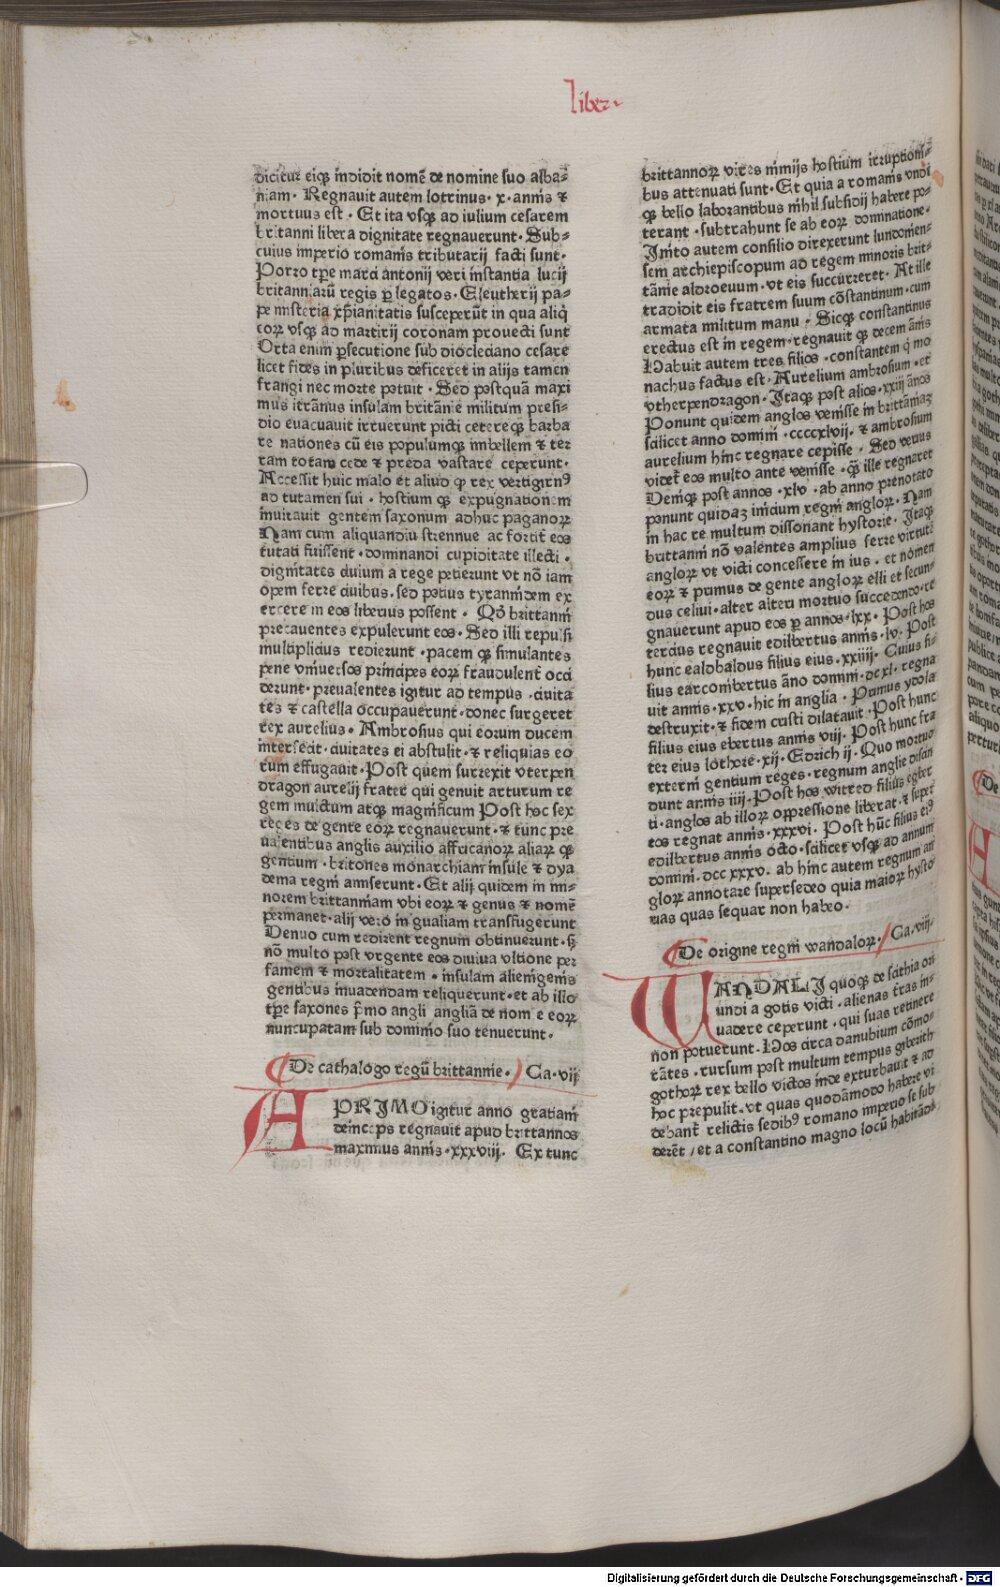 liber
dicitur eiq; indidit nomē de nomine suo alba=
niam . Regnauit autem lotrinus . x . annis ⁊
mortuus est . Et ita vsq; ad iulium cesarem
britanni libera dignitate regnauerunt . Sub=
cuius imperio romanis tributarij facti sunt .
Porro tp̄e marci antonij veri instantia lucij
britanniarū regis ꝑ legatos . Eleutherij pa=
pe misteria xp̄ianitatis susceperūt in qua aliq̄
coꝝ vsq; ad martirij coronam prouecti sunt
Orta enim ꝑsecutione sub diocleciano cesare
licet fides in pluribus deficeret in alijs tamen
frangi nec morte potuit . Sed postquā maxi
mus itrānus insulam britānie militum presi=
dio euacuauit irruerunt picti cetereq; barba
re nationes cū eis populumq; imbellem ⁊ ter
ram totam cede ⁊ preda vastare ceperunt .
Accessit huic malo et aliud q̄ rex vertigirn⁹
ad tutamen sui . hostium q; expugnationem
inuitauit gentem saxonum adhuc paganoꝝ
Nam cum aliquandiu strennue ac fortit̄ eos
tutati fuissent . dominandi cupiditate illecti .
dignitates ciuium a rege petierunt vt nō iam
opem ferre ciuibus . sed potius tyrannidem ex
ercere in eos liberius possent . Qđ brittanni
precauentes expulerunt eos . Sed illi repulsi
multiplicius redierunt . pacem q; simulantes
pene vniuersos principes eoꝝ fraudulent̄ occi
derunt . preualentes igitur ad tempus . ciuita
tes ⁊ castella occupauerunt . donec surgeret
rex aurelius . Ambrosius qui eorum ducem
interfecit . ciuitates ei abstulit . ⁊ reliquias eo
rum effugauit . Post quem surrexit vterpen
dragon aurelij frater qui genuit arturum re
gem inuictum atq; magnificum Post hoc sex
reges de gente eoꝝ regnauerunt . ⁊ tunc pre
ualentibus anglis auxilio affricanoꝝ aliaꝝ q;
gentium . britones monarchiam insule ⁊ dya
dema regni amiserunt . Et alij quidem in mi=
norem brittanniam vbi eoꝝ ⁊ genus ⁊ nomē
permanet . alij vero in gualiam transfugerunt
Denuo cum redirent regnum obtinuerunt . s;
nō multo post vrgente eos diuina vltione per
famem ⁊ mortalitatem . insulam alienigenis
gentibus inuadendam reliquerunt . et ab illo
tp̄e saxones p̄mo angli angliā de nomīe eoꝝ
nuncupatam sub dominio suo tenuerunt .
De cathalogo regū brittannie . Ca . vij
APRIMO igitur anno gratiam
deinceps regnauit apud brittannos
maximus annis . xxxviij . Ex tunc
brittannoꝝ vires nimijs hostium irruptioni=
bus attenuati sunt . Et quia a romanis vndi
q; bello laborantibus nihil subsidij habere po=
terant . subtrahunt se ab eoꝝ dominatione .
Inito autem consilio direxerunt lundonien=
sem archiepiscopum ad regem minoris brit=
tānie aldroeuum . vt eis succurreret . At ille
tradidit eis fratrem suum cōstantinum . cum
armata militum manu . Sicq; constantinus
erectus est in regem . regnauit q; decem ānis
Habuit autem tres filios . constantem q̄ mo
nachus factus est . Aurelium ambrosium . et
vtherpendragon . Itaq; post alios . xxiij ānos
Ponunt quidem anglos venisse in brittāniaꝫ
scilicet anno domini . ccccxlvij . ⁊ ambrosium
aurelium hinc regnare cepisse . Sed verius
videt̄ eos multo ante venisse . q̄ ille regnaret
Deniq; post annos . xlv . ab anno prenotato
ponunt quidaꝫ inicium regni angloꝝ . Nam
in hac re multum dissonant hystorie . Itaq;
brittanni nō valentes amplius ferre virtutē
angloꝝ vt victi concessere in ius . et nomen
eoꝝ ⁊ primus de gente angloꝝ elli et secun=
dus celiui . alter alteri mortuo succedendo . re
gnauerunt apud eos ꝑ annos . lxx . Post hos
tercius regnauit edilbertus annis . lv . Post
hunc ealobaldus filius eius . xxiiij . Cuius fi=
lius earcombertus āno domini . dcxl . regna
uit annis . xxv . hic in anglia . Primus ydola
destruxit . ⁊ fidem cristi dilatauit . Post hunc
filius eius ebertus annis viij . Post hunc fra
ter eius lothore . xij . Edrich ij . Quo mortuo
externi gentium reges . regnum anglie discin
dunt annis iiij . Post hos witred filius egber
ti . anglos ab illoꝝ oppressione liberat . ⁊ super
eos regnat annis . xxxvi . Post hūc filius ei⁹
edilbertus annis octo . scilicet vsq; ad annum
domini . dcc xxxv . ab hinc autem regnum an
gloꝝ annotare supersedeo quia maioꝝ hysto
rias quas sequar non habeo .
De origine regni wandaloꝝ . Ca . viij .
WANDALI quoq; de scithia ori
undi a gotis victi . alienas t̄ras in=
uadere ceperunt . qui suas retinere
non potuerunt . Hos circa danubium cōmo=
rātes . rursum post multum tempus giberith
gothoꝝ rex bello victos inde exturbauit ⁊ ad
hoc prepulit . vt quas quodāmodo habere vi
debant̄ relictis sedib⁹ romano imperio se sub
derēt / et a constantino magno locū habitādi